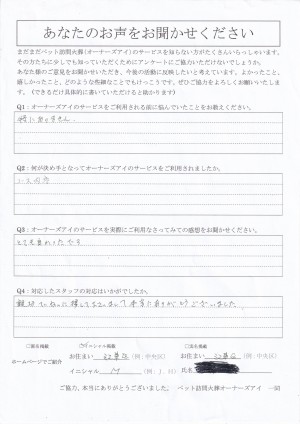 あなたのお声をお聞かせください
まだまだペット訪問火葬(オーナーズアイ)のサービスを知らない方がたくさんいらっしゃいます。
その方たちに少しでも知っていただくためにアンケートにご協力いただけないでしょうか。
あなた様のご意見をお聞かせいただき、今後の活動に反映したいと考えています。よかったこと、
嬉しかったこと、どのような些細なことでもけっこうです。ぜひご協力をよろしくお願いいたしま
す。(できるだけ具体的に書いていただけると助かります)
Q1：オーナーズアイのサービスをご利用される前に悩んでいたことをお教えください。
特にありません。
Q2：何が決め手となってオーナーズアイのサービスをご利用されましたか。
Q3：オーナーズアイのサービスを実際にご利用なさってみての感想をお聞かせください。
とても良かったです
Q4：対応したスタッフの対応はいかがでしたか。
親切、ていねいに接して下さいまして本当にありがとうございました。
□イニシャル掲載
ホームページでご紹介
お住まい 江東区 (例：中央区)
お住まい 江東区 (例：中央区)
イニシャル M (例：J．H)
氏名
ご協力、本当にありがとうございました。 ペット訪問火葬オーナーズアイ 一同